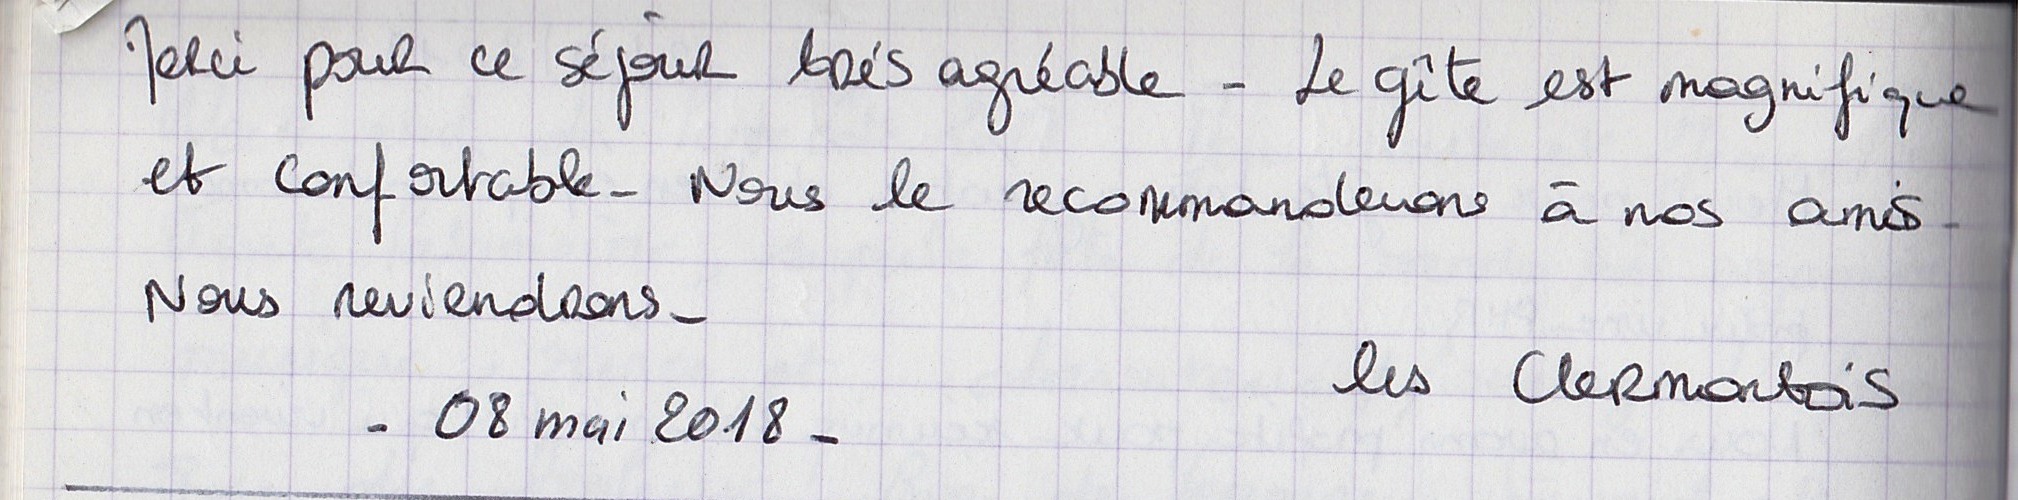 Merci pour ce séjour très agréable - Le gîte est magnifique
et confortable - Nous le recommanderons à nos amis -
Nous reviendrons -
les Clermontois
- 08 mai 2018 -